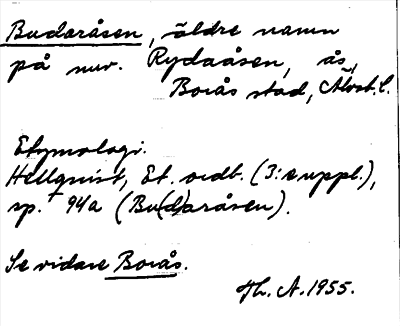 Budaråsen, äldre namn
på nuv. Rydaåsen, ås,
Borås stad, Älvsb. l.
Etymologi.
Hellquist, Et. ordb. (3: suppl.),
sp. 94a (Bu(d)aråsen).
Se vidare Borås.
Th. A. 1955.